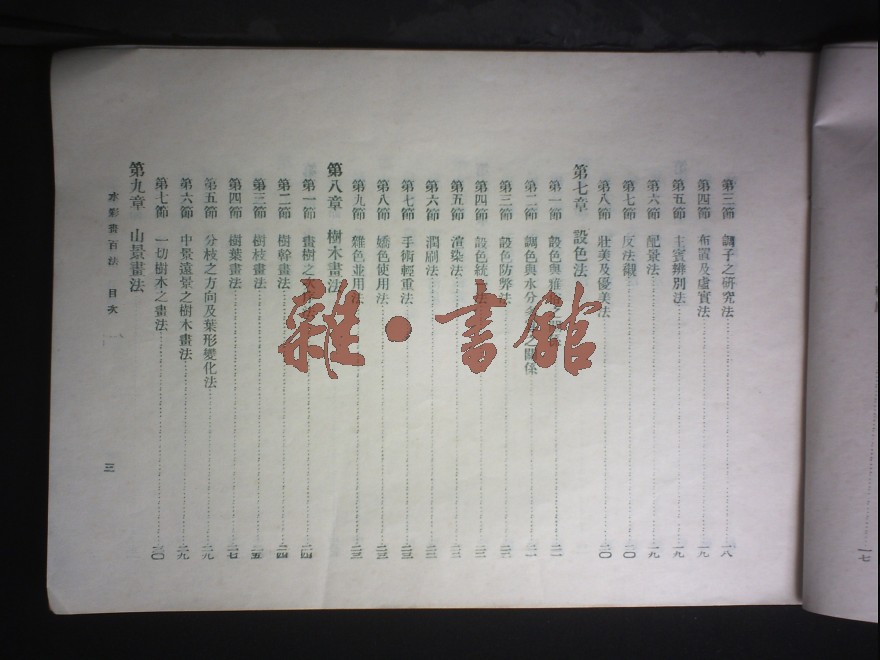 第三節 調子之研究法 一八
第四節 布置及虛實法 一九
第五節 主賓辨別法 一九
第六節 配景法 一九
第七節 反法襯 二〇
第八節 壯美及優美法 二〇
第七章 設色法
第一節 設色與雅 二一
第二節 調色與水分 之關係 二一
第三節 設色防弊法
第四節 設色統 法
第五節 渲染法
第六節 潤刷法
第七節 手術輕重法 二三
第八節 嬌色使用法 二三
第九節 雜色並用法 二三
第八章 樹木畫法
第一節 畫樹之 二四
第二節 樹幹畫法 二四
第三節 樹枝畫法 二五
第四節 樹葉畫法 二七
第五節 分枝之方向及葉形變化法 二九
第六節 中景遠景之樹木畫法 二九
第七節 一切樹木之畫法 三〇
第九章 山景畫法
水彩畫百法 目次
三
一七
雜·書館